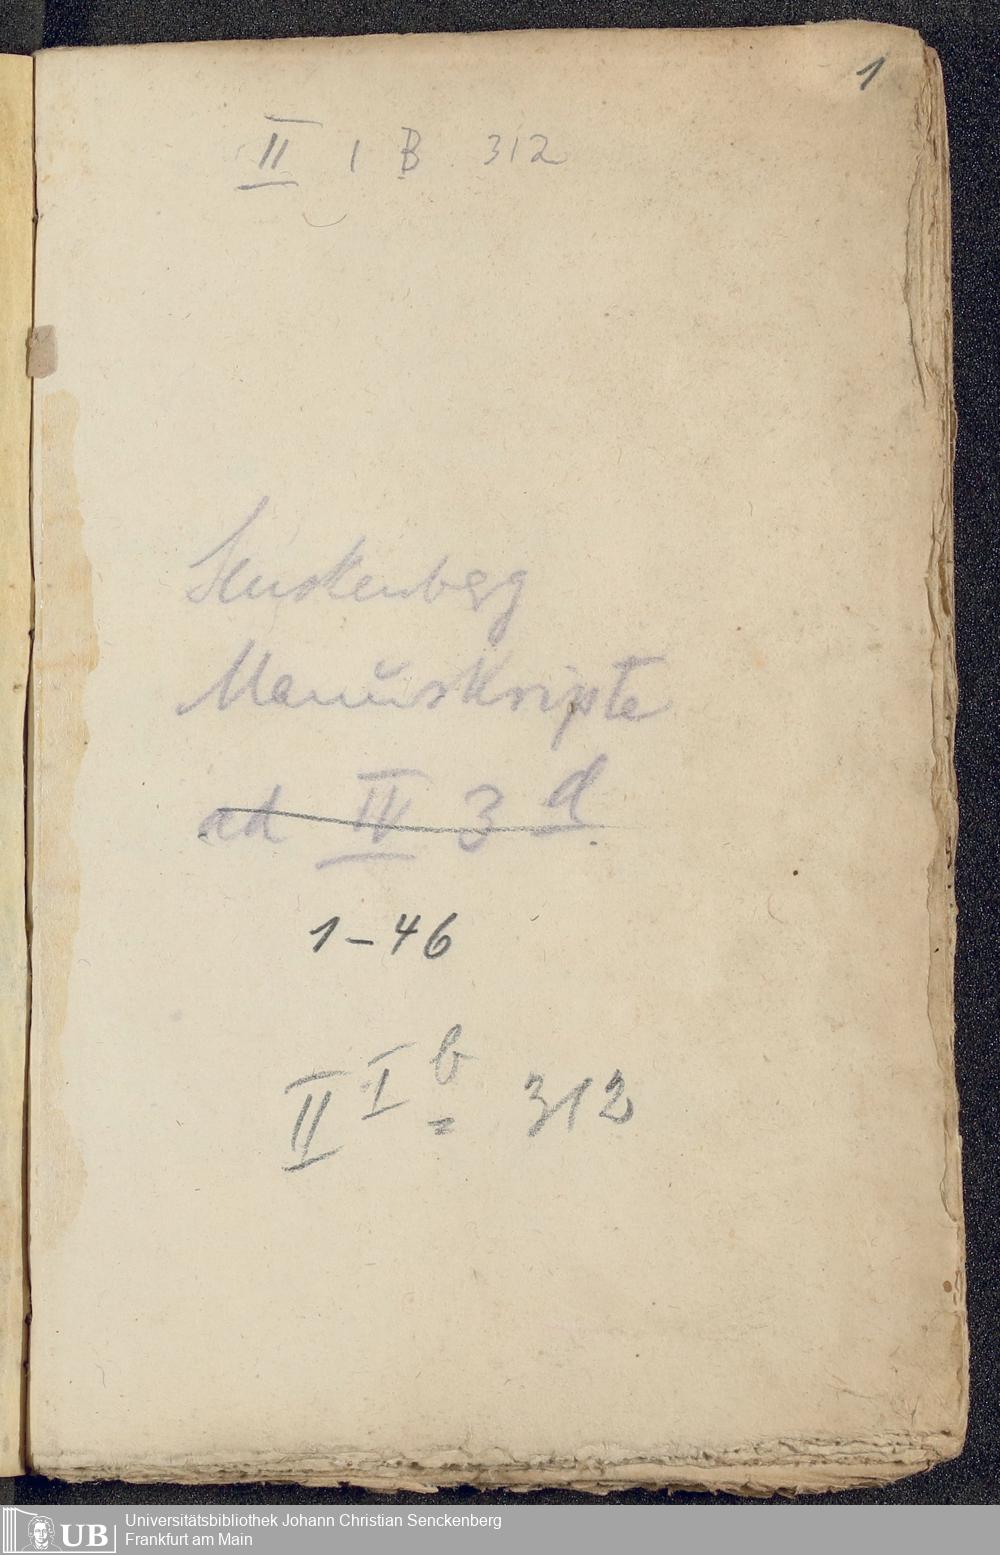 1
II I B 312
Senckenbergg
Manuskripte
ad IV 3 d.
1-46
II I b 312
UB
Universitätsbibliothek Johann Christian Senckenberg
Frankfurt am Main